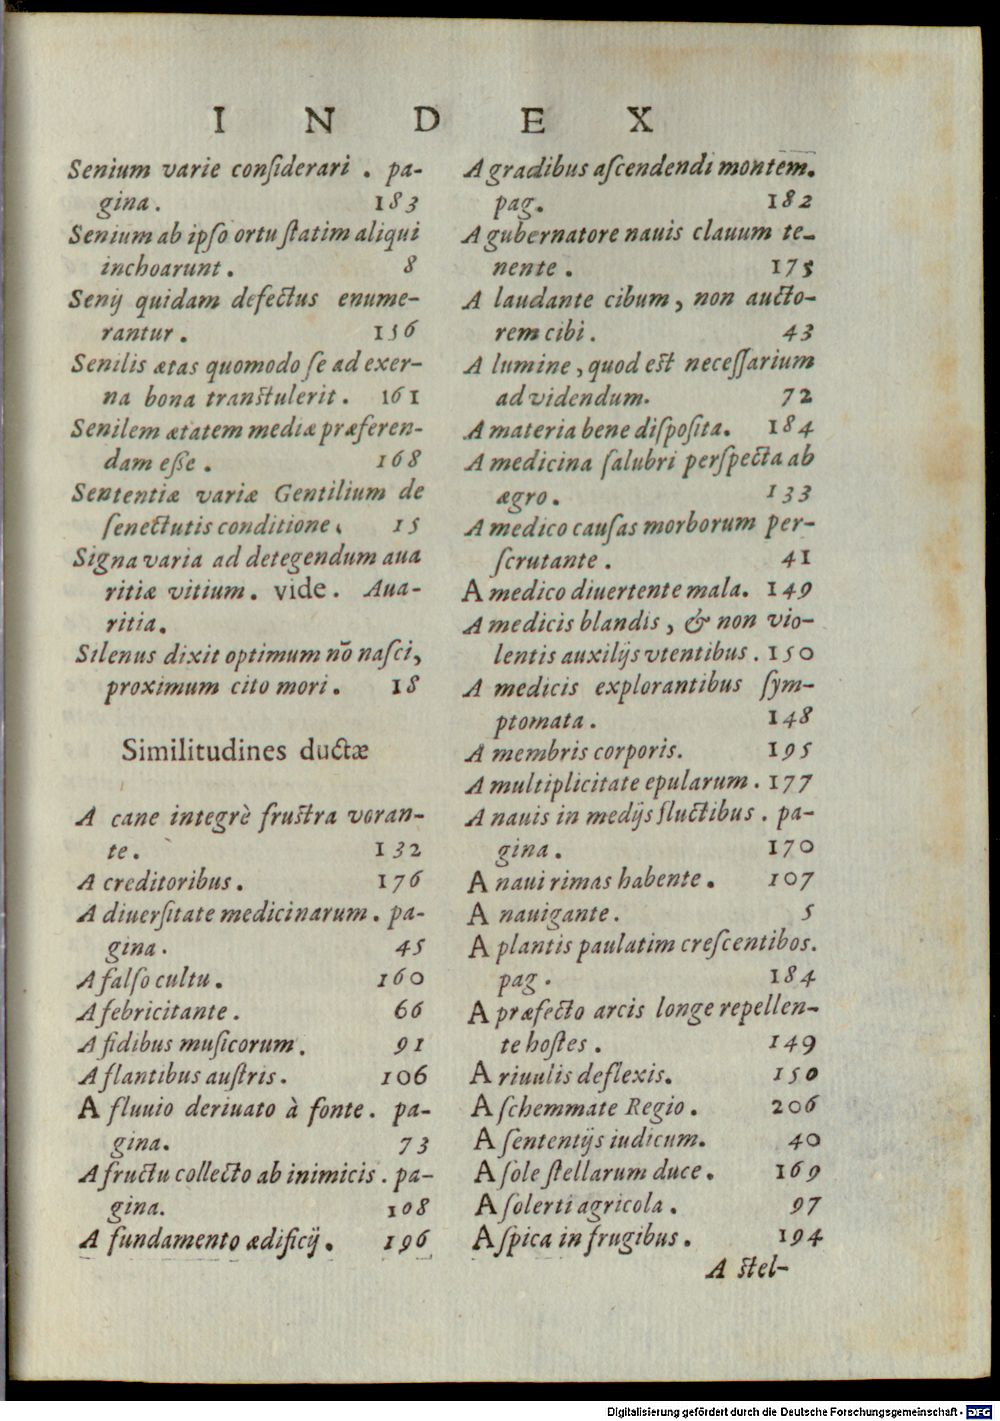 I N D E X
Senium varie conſiderari . pa-
gina . 183
Senium ab ipſo ortu ſtatim aliqui
inchoarunt . 8
Senij quidam defectus enume-
rantur . 156
Senilis ætas quomodo ſe ad exer-
na bona tranſtulerit . 161
Senilem ætatem mediæ præferen-
dam eſse . 168
Sententiæ variæ Gentilium de
ſenectutis conditione . 15
Signa varia ad detegendum aua
ritiæ vitium . vide . Aua-
ritia.
Silenus dixit optimum nō naſci,
proximum cito mori . 18
Similitudines ductæ
A cane integrè fruſtra voran-
te . 132
A creditoribus . 176
A diuerſitate medicinarum . pa-
gina . 45
A falſo cultu . 160
A febricitante . 66
A fidibus muſicorum . 91
A flantibus auſtris . 106
A fluuio deriuato à fonte . pa-
gina . 73
A fructu collecto ab inimicis . pa-
gina. 108
A fundamento ædificij . 196
A gradibus aſcendendi montem.
pag. 182
A gubernatore nauis clauum te-
nente . 175
A laudante cibum, non aucto-
rem cibi . 43
A lumine, quod eſt neceſſarium
ad videndum. 72
A materia bene diſpoſita. 184
A medicina ſalubri perſpecta ab
ægro . 133
A medico cauſas morborum per-
ſcrutante . 41
A medico diuertente mala. 149
A medicis blandis, & non vio-
lentis auxilijs vtentibus . 150
A medicis explorantibus ſym-
ptomata . 148
A membris corporis. 195
A multiplicitate epularum . 177
A nauis in medijs fluctibus . pa-
gina . 170
A naui rimas habente . 107
A nauigante . 5
A plantis paulatim creſcentibos.
pag . 184
A præfecto arcis longe repellen-
te hoſtes . 149
A riuulis deflexis. 150
A ſchemmate Regio . 206
A ſententijs iudicum. 40
A ſole ſtellarum duce . 169
A ſolerti agricola . 97
A ſpica in frugibus . 194
A ſtel-
Digitalisierung gefördert durch die Deutsche Forschungsgemeinschaft - DFG